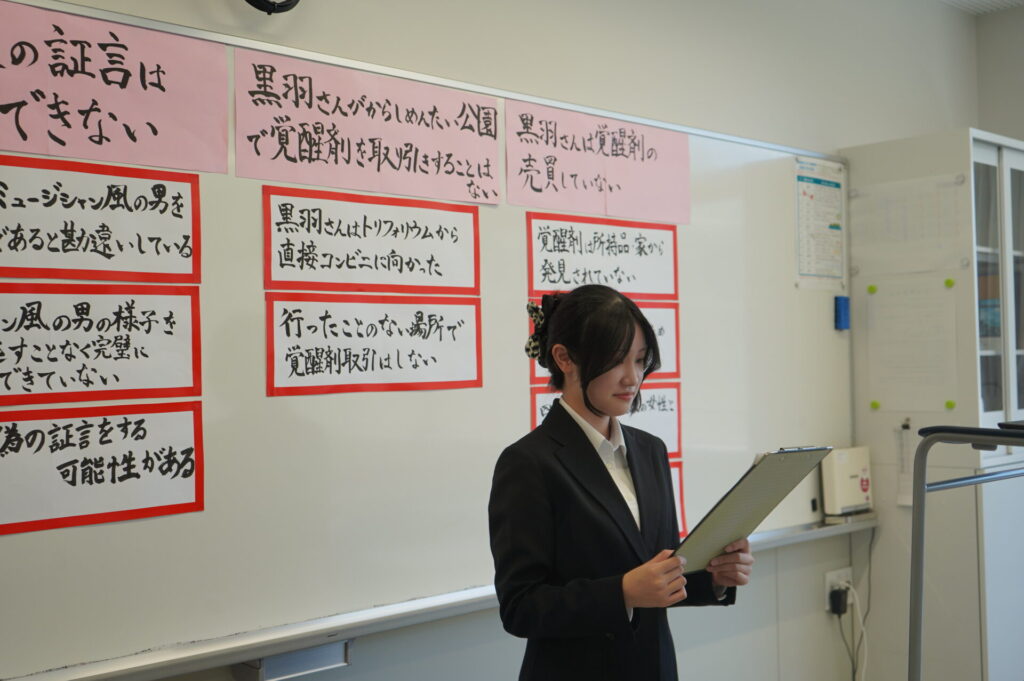 の証言は
できない
ミュージシャン風の男を
であると勘違いしている
ン風の男の様子を
すことなく完璧に
できていない
偽の証言をする
可能性がある
黒羽さんがからしめんたい公園
で覚醒剤を取り引きすることは
ない
黒羽さんはトリフォリウムから
直接コンビニに向かった
行ったことのない場所で
覚醒剤取引はしない
黒羽さんは覚醒剤の
売買していない
覚醒剤は所持品・家から
発見されていない
め
の女性と